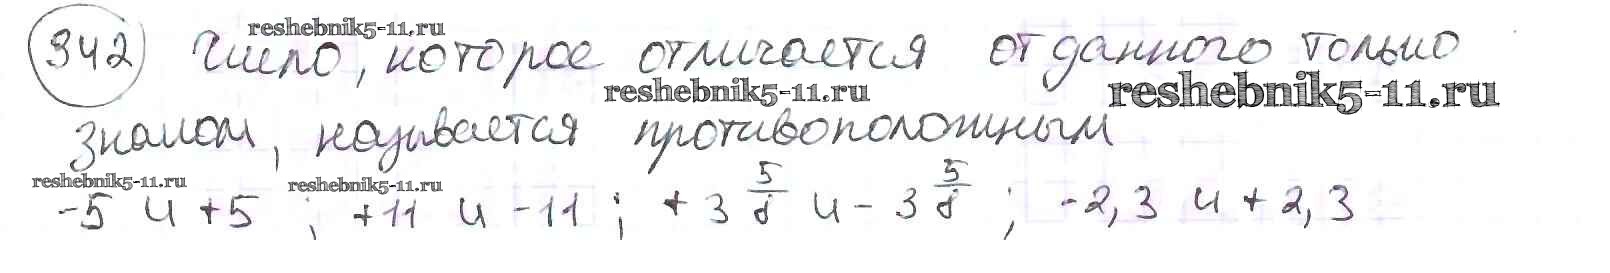 reshebnik5-11.ru
342 Число, которое отличается от данного только
reshebnik5-11.ru reshebnik5-11.ru
знаком, называется противоположным
reshebnik5-11.ru reshebnik5-11.ru
-5 и +5 ; +11 и -11 ; +3 5/8 и -3 5/8 ; -2,3 и +2,3